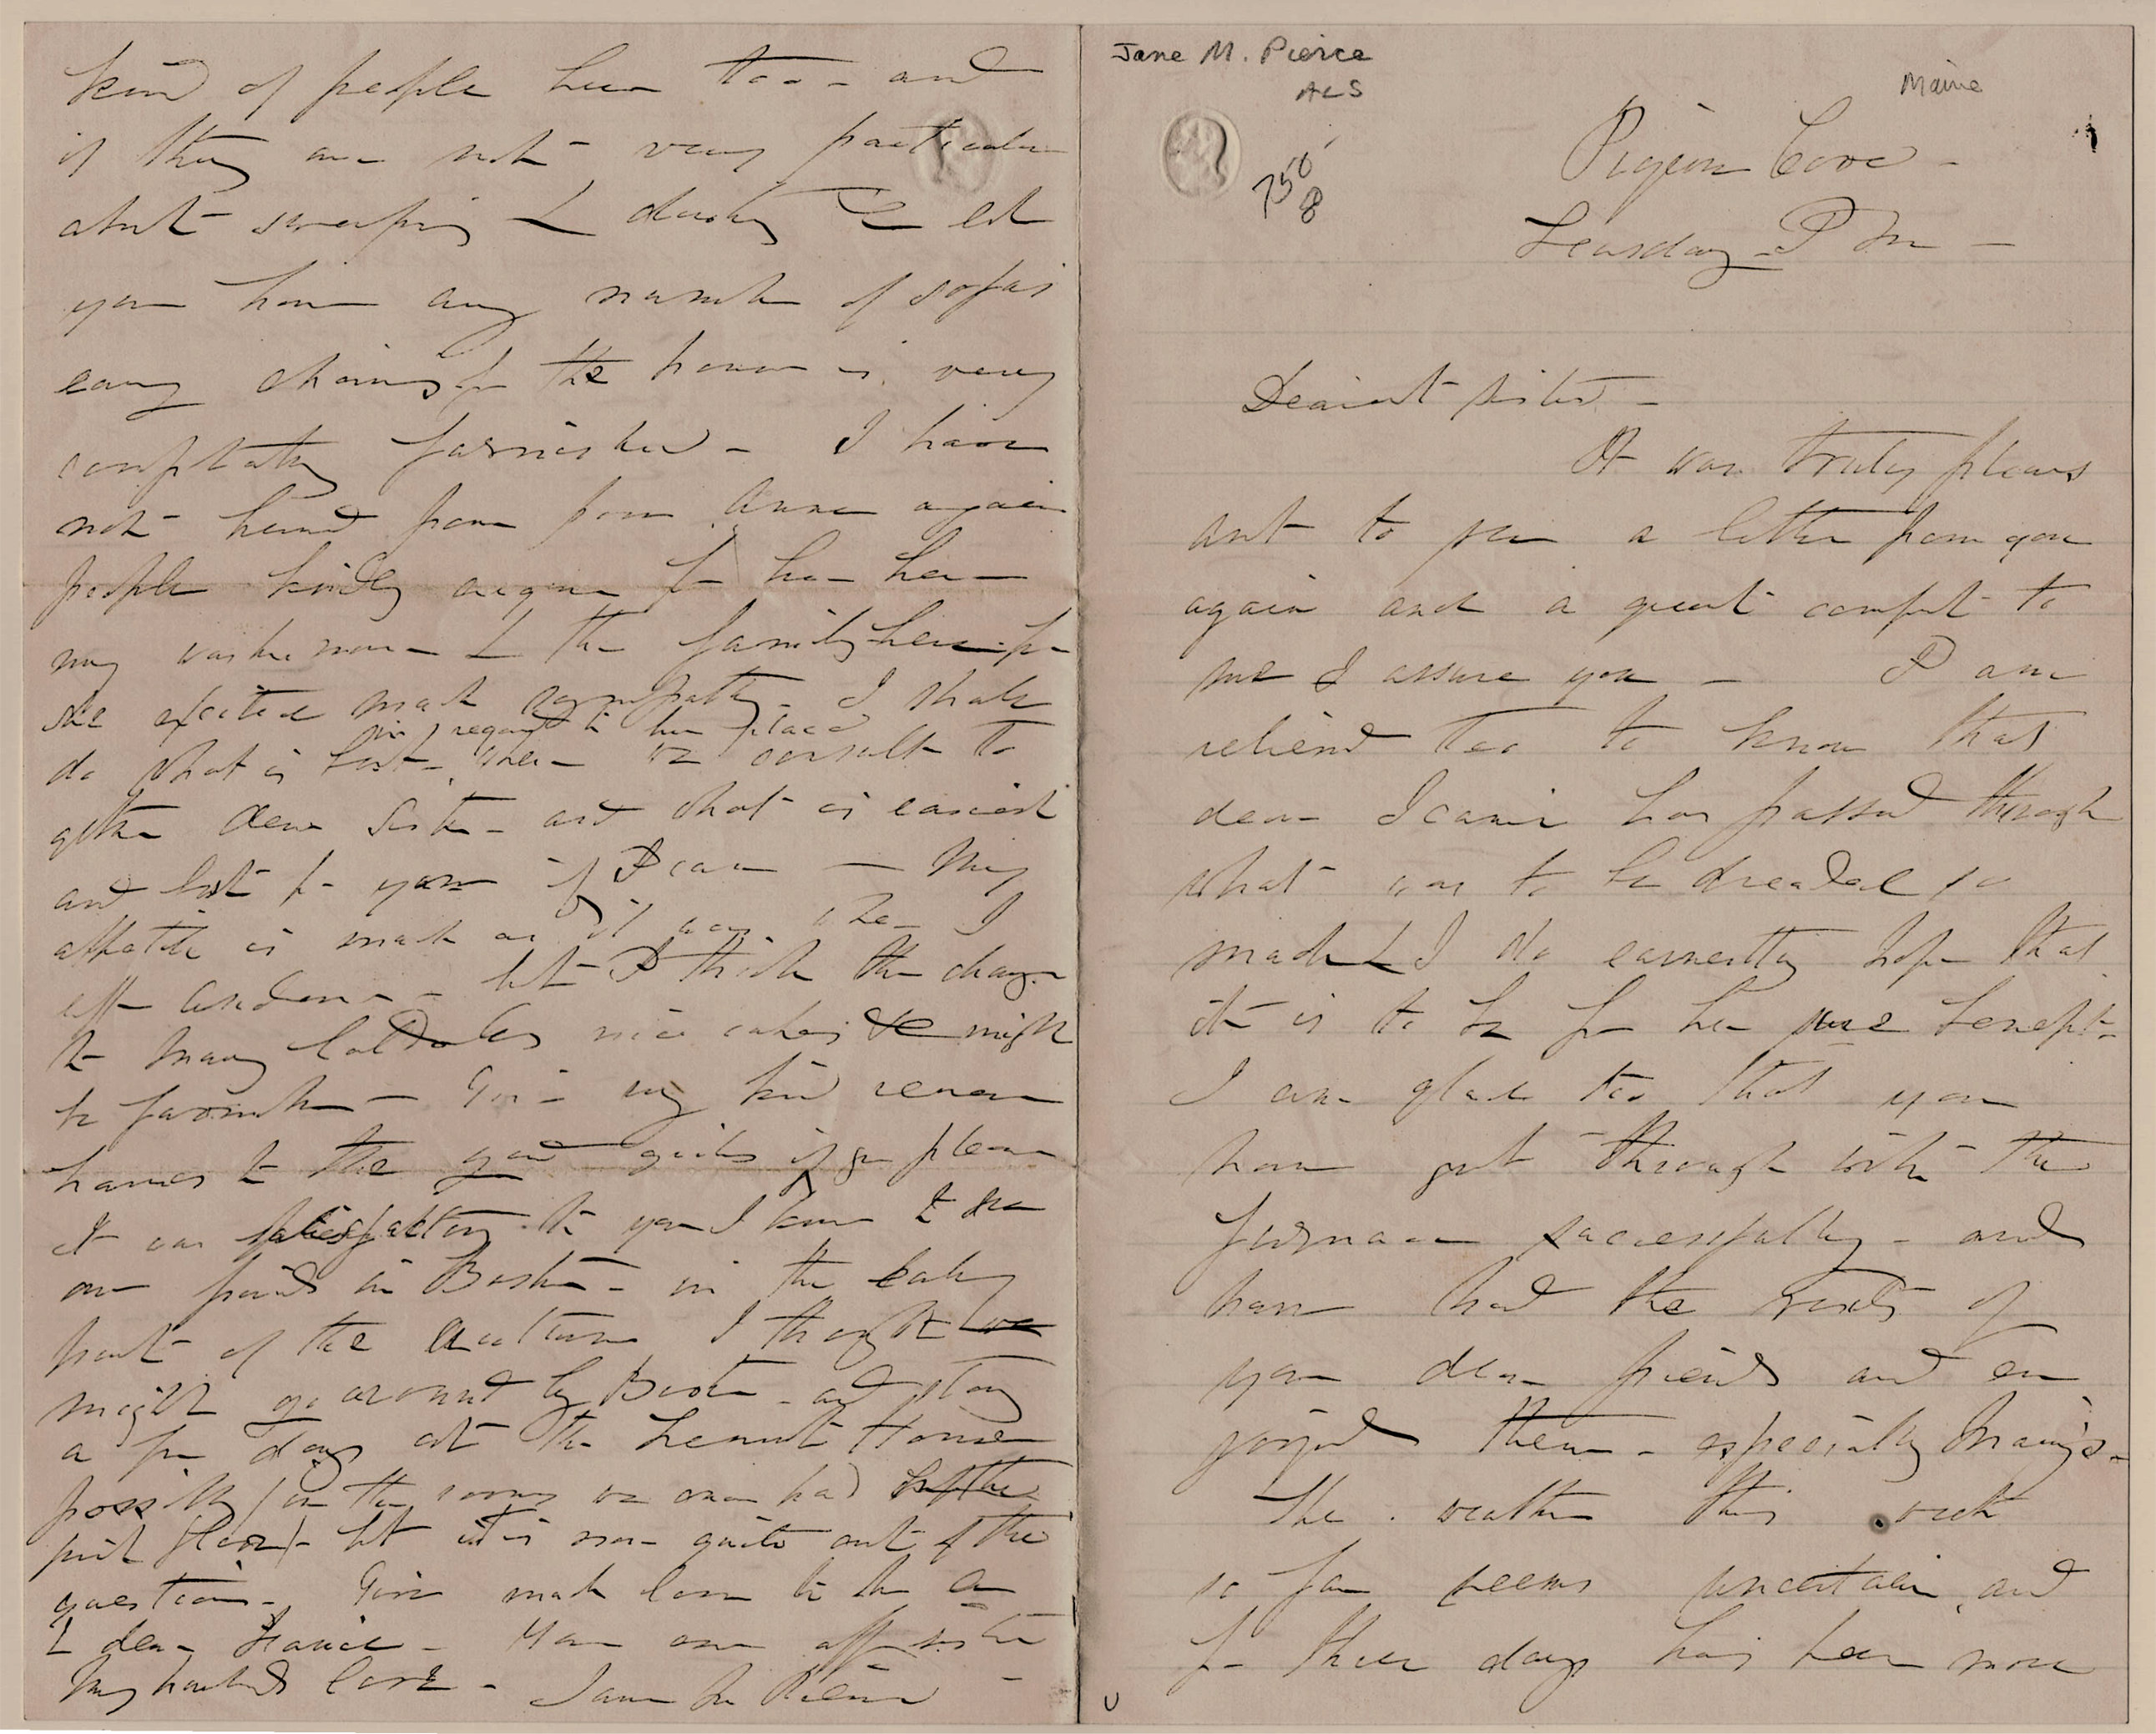 Jane M. Pierce
ALS
Maine
750
8
Pigeon Cove -
Tuesday P M -
Dearest sister -
It was truly pleas
ant to see a letter from you
again and a great comfort to
me I assure you - I am
relieved too to know that
dear has passed through
what was to be dreaded so
much & I do earnestly hope that
it is to be for her benefit -
I am glad too that you
have got through with the
furnace successfully - and
have had the visits of
your dear friends and en
joyed them - especially Mary's -
The weather this week
so far seems uncertain, and
for three days has been more
kind of people here too - and
if they are not very particular
about sweeping & dusting
you have any number of sofas
easy chairs for the house is very
comfortably furnished - I have
not heard from poor Anna again
people kindly inquire for her here
my washerwoman & the family here - for
she excited much sympathy - I shall
in regard to her place
do what is best - when we consult to
gether dear Sister - and what is easiest
and best for you if I can - My
appetite is much as it was when I
left Andover - but I think the change
to Mary nice cakes might
be favorable - Give my kind remem
brances to the good girls if you please
It was satisfactory to you I know to see
our friends in Boston - in the early
part of the autumn I thought we
might go around by Boston - and stay
a few days at the Tremont House
possibly (in the rooms we once had
first floor) - but it is now quite out of the
question - Give much love to
& dear - Your own aff sister
My husband's love - Jane M Pierce